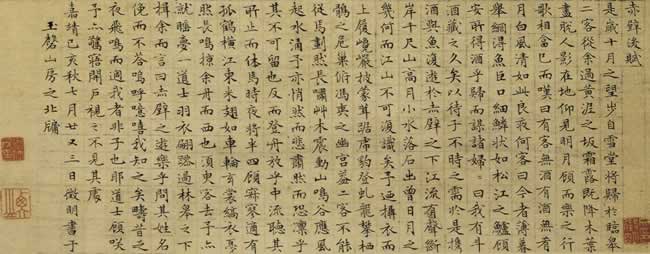 赤壁後賦
是歲十月之望步自雪堂將歸於臨皋
二客從余過黃泥之坂霜露既降木葉
盡脫人影在地仰見明月顧而樂之行
歌相答已而嘆曰有客無酒有酒無肴
月白風清如此良夜何客曰今者薄暮
舉網得魚巨口細鱗狀如松江之鱸顧
安所得酒乎歸而謀諸婦〻曰我有斗
酒藏之久矣以待子不時之需於是攜
酒與魚復遊於赤壁之下江流有聲斷
岸千尺山高月小水落石出曾日月之
幾何而江山不可復識矣予乃攝衣而
上履巉巖披蒙茸踞虎豹登虬龍攀栖
鶻之危巢俯馮夷之幽宮蓋二客不能
從焉劃然長嘯草木震動山鳴谷應風
起水涌予亦悄然而悲肅然而恐凜乎
其不可留也反而登舟放乎中流聽其
所止而休焉時夜將半四顧寂寥適有
孤鶴橫江東來翅如車輪玄裳縞衣戛
然長鳴掠余舟而西也須臾客去予亦
就睡夢一道士羽衣翩躚過臨皋之下
揖余而言曰赤壁之遊樂乎問其姓名
俛而不答嗚呼噫嘻我知之矣疇昔之
夜飛鳴而過我者非子也耶道士顧咲
予亦驚寤開戶視之不見其處
嘉靖己亥秋七月廿又三日徵明書于
玉磬山房之北牖